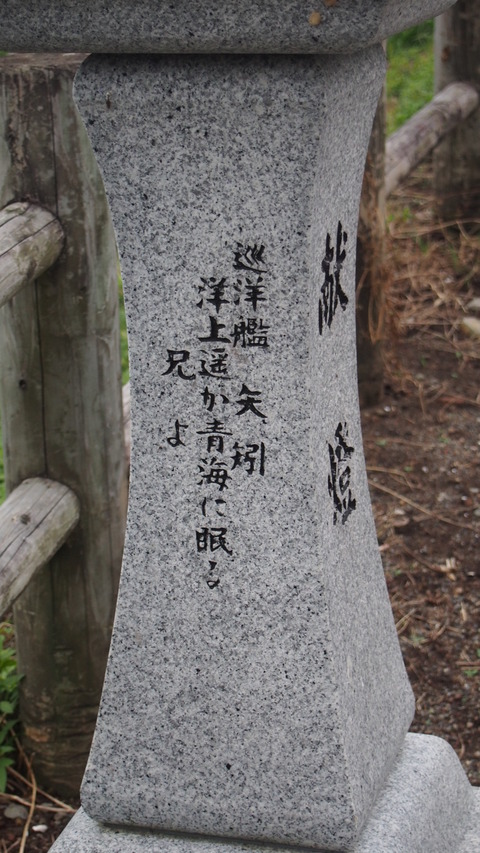 献燈
巡洋艦 矢矧
洋上遥か青海に眠る
兄よ